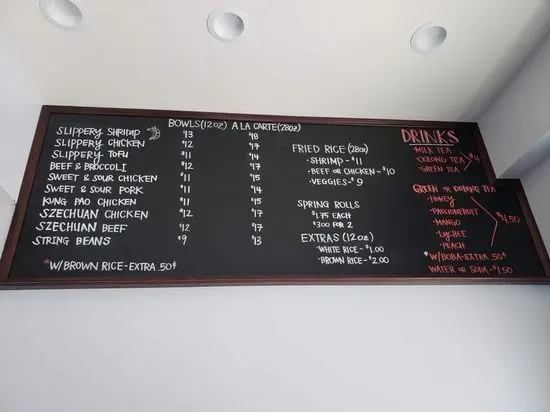 BOWLS(12oz) A LA CARTE(28oz)
SLIPPERY SHRIMP $13 $18
SLIPPERY CHICKEN $12 $17
SLIPPERY TOFU $11 $14
BEEF & BROCCOLI $12 $17
SWEET & SOUR CHICKEN $11 $15
SWEET & SOUR PORK $11 $14
KUNG PAO CHICKEN $11 $15
SZECHUAN CHICKEN $12 $17
SZECHUAN BEEF $12 $17
STRING BEANS $9 $13
*W/BROWN RICE-EXTRA .50¢
FRIED RICE (28oz)
•SHRIMP-$11
•BEEF OR CHICKEN-$10
•VEGGIES-$9
SPRING ROLLS
$1.75 EACH
$3.00 FOR 2
EXTRAS (12oz)
•WHITE RICE-$1.00
•BROWN RICE-$2.00
DRINKS
•MILK TEA
•OOLONG TEA $4
•GREEN TEA
GREEN OR OOLONG TEA
•HONEY
•PASSIONFRUIT
•MANGO $4.50
•LYCHEE
•PEACH
*W/BOBA-EXTRA .50¢
WATER OR SODA-$1.50